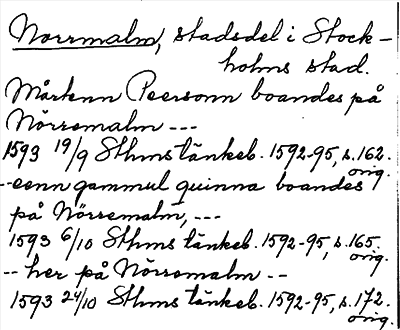 Norrmalm, stadsdel i Stock-
holms stad.
Mårtenn Peersonn boandes på
Nörremalm ---
1593 19/9 Sthms tänkeb. 1592-95, s. 162.
orig.
-- eenn gammul quinna boandes
på Nörremalm, ---
1593 6/10 Sthms tänkeb. 1592-95, s. 165.
orig.
-- her på Nörremalm --
1593 24/10 Sthms tänkeb. 1592-95, s. 172.
orig.